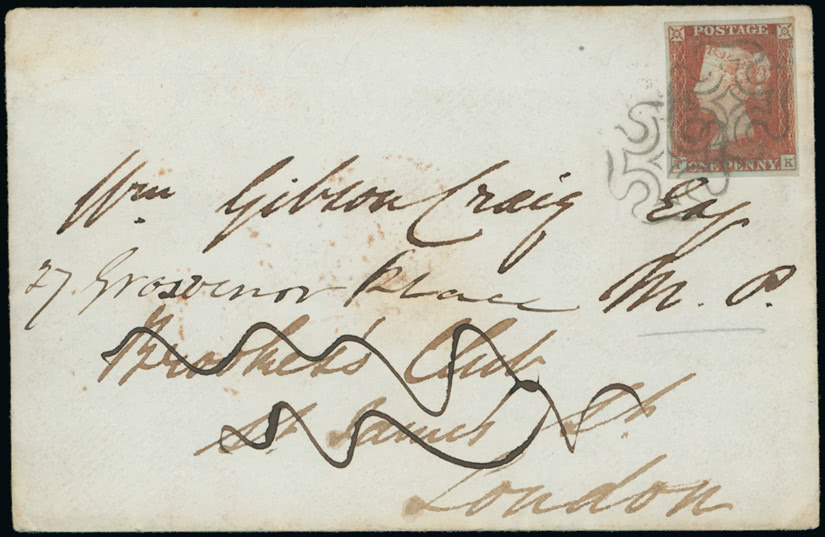 POSTAGE
ONE PENNY
K
Wm Gibson Craig Esq
27 Grosvenor Place M. P.
Brookes's Club
St. James St.
London